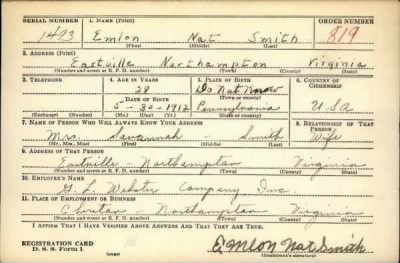 SERIAL NUMBER 1. NAME (Print) ORDER NUMBER
1493 Emlon Nat Smith 819
(First) (Middle) (Last)
2. ADDRESS (Print)
Eastville Northampton Virginia
(Number and street or R. F. D. number) (Town) (County) (State)
3. TELEPHONE 4. AGE IN YEARS 5. PLACE OF BIRTH 6. COUNTRY OF CITIZENSHIP
28 Do Not Know
DATE OF BIRTH (Town or county)
5-30-1912 Pennsylvania USA
(Exchange) (Number) (Mo.) (Day) (Yr.) (State or country)
7. NAME OF PERSON WHO WILL ALWAYS KNOW YOUR ADDRESS 8. RELATIONSHIP OF THAT PERSON
Mrs. Savannah - Smith Wife
(Mr., Mrs., Miss) (First) (Middle) (Last)
9. ADDRESS OF THAT PERSON
Eastville - Northampton Virginia
(Number and street or R. F. D. number) (Town) (County) (State)
10. EMPLOYER'S NAME
G. L. Webster Company Inc.
11. PLACE OF EMPLOYMENT OR BUSINESS
Cheriton - Northampton Virginia
(Number and street or R. F. D. number) (Town) (County) (State)
I AFFIRM THAT I HAVE VERIFIED ABOVE ANSWERS AND THAT THEY ARE TRUE.
REGISTRATION CARD
D. S. S. Form 1
Emlon Nat Smith
(Registrant's signature)